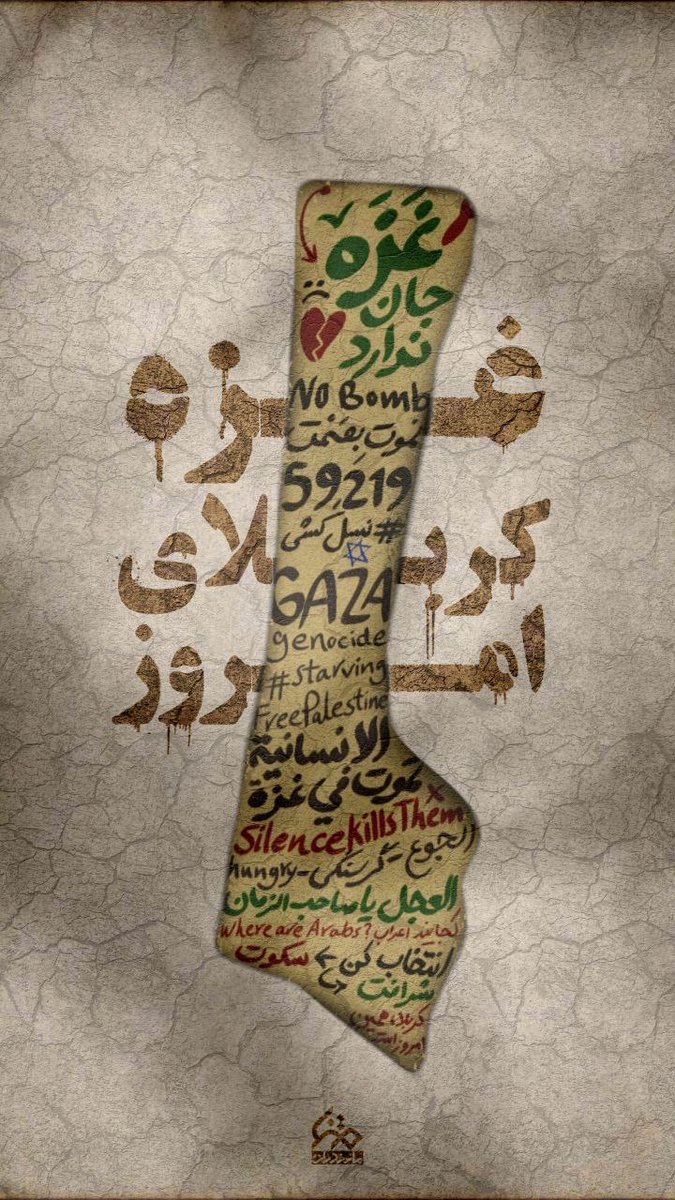 غزه
کربلای
امروز
غَزَه
جان
ندارد
No Bomb
59,219
#نسل کشی
GAZA
genocide
#starving
FreePalestine
الانسانية
تموت في غزة
SilenceKillsThem
الجوع - گرسنگی - hungry
العجل یا صاحب الزمان
کجایید اعراب؟ where are Arabs?
انتخاب کن سکوت
شرافت
امروز است